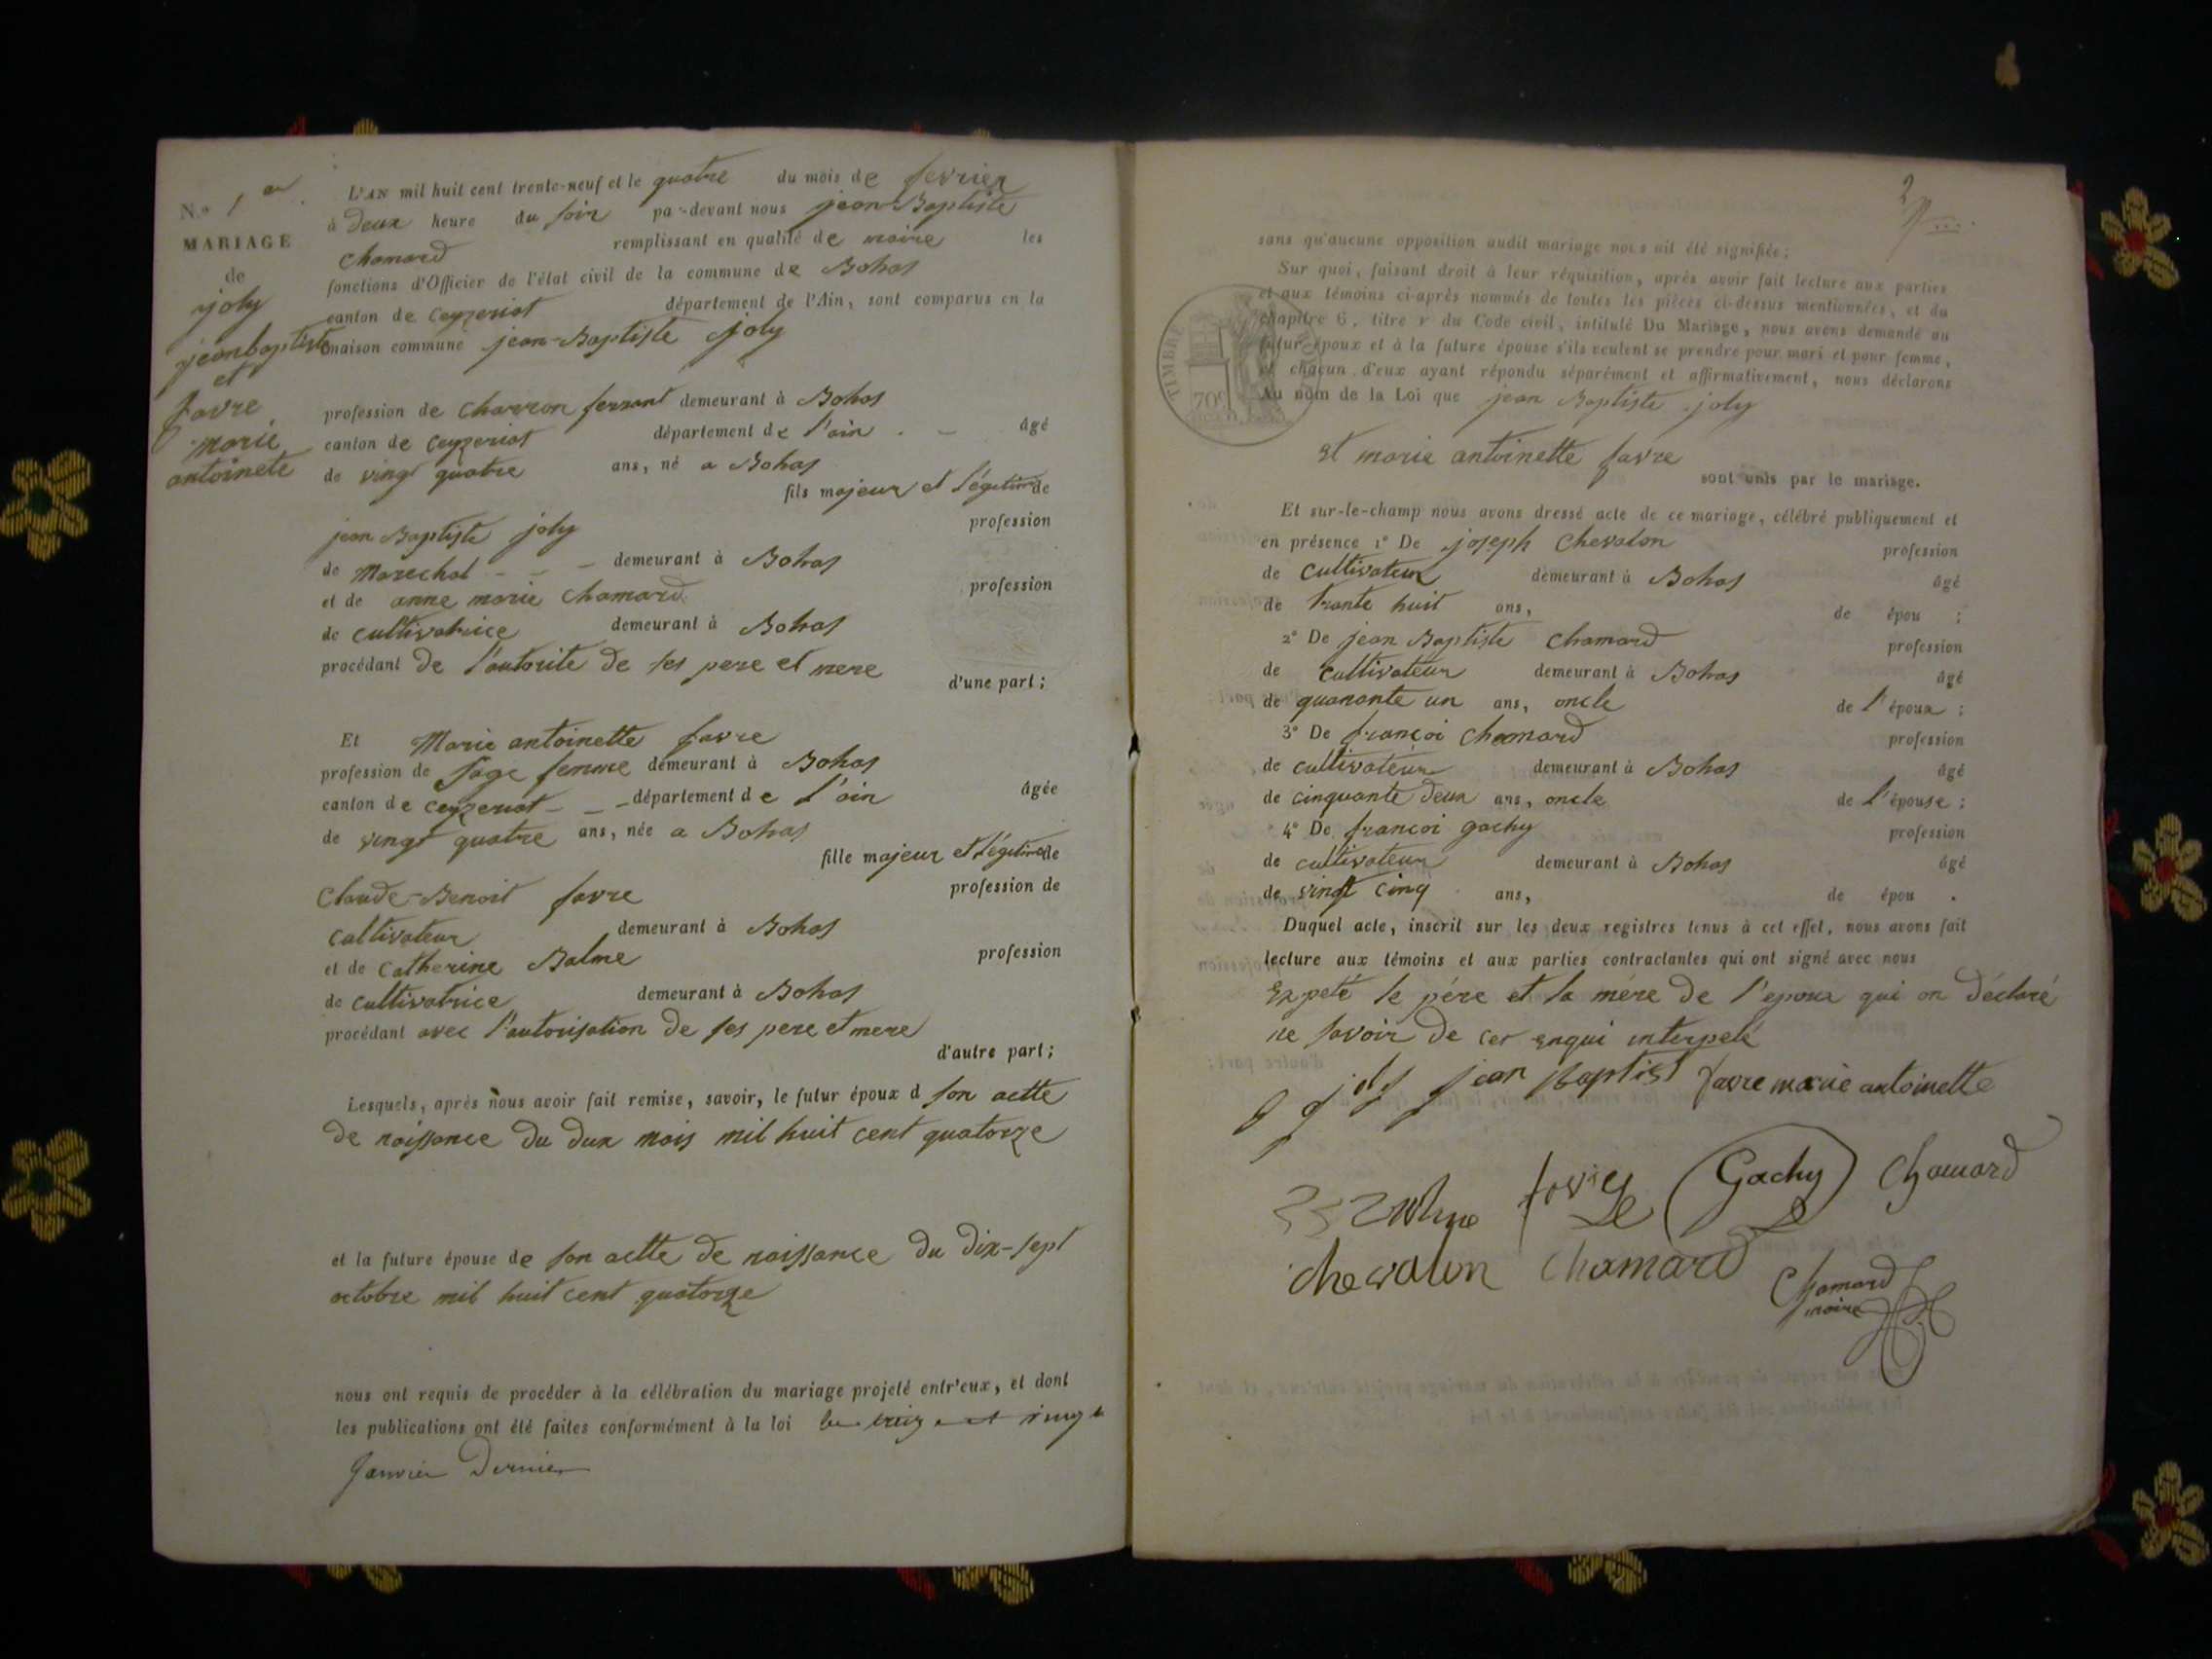 N.º 1er
MARIAGE
de
joly
jean baptiste
et
favre
marie
antoinete
L'AN mil huit cent trente-neuf et le quatre du mois de fevrier
à deux heure du soir pa-devant nous jean-Baptiste
chamard remplissant en qualité de maire les
fonctions d'Officier de l'état civil de la commune de Bohas
canton de ceyzeriat département de l'Ain, sont comparus en la
maison commune jean-Baptiste joly
profession de charron ferrant demeurant à Bohas
canton de ceyzeriat département de l'ain âgé
de vingt quatre ans, né a Bohas
fils majeur et légitime de
jean Baptiste joly profession
de Marechal demeurant à Bohas
et de anne marie chamard profession
de cultivatrice demeurant à Bohas
procédant de l'autorite de ses pere et mere
d'une part;
Et Marie antoinette favre
profession de sage femme demeurant à Bohas
canton de ceyzeriat département de l'ain âgée
de vingt quatre ans, née a Bohas
fille majeur et légitime de
Claude-Benoit favre profession de
cultivateur demeurant à Bohas
et de catherine Balme profession
de cultivatrice demeurant à Bohas
procédant avec l'autorisation de ses pere et mere
d'autre part;
Lesquels, après nous avoir fait remise, savoir, le futur époux d son actte
de naissance du dux mars mil huit cent quatorze
et la future épouse de son actte de naissance du dix-sept
octobre mil huit cent quatorze
nous ont requis de procéder à la célébration du mariage projeté entr'eux, et dont
les publications ont été faites conformément à la loi
Janvier Dernier
2
sans qu'aucune opposition audit mariage nous ait été signifiée;
Sur quoi, faisant droit à leur réquisition, après avoir fait lecture aux parties
et aux témoins ci-après nommés de toutes les pièces ci-dessus mentionnées, et du
chapitre 6, titre v du Code civil, intitulé Du Mariage, nous avons demandé au
futur époux et à la future épouse s'ils veulent se prendre pour mari et pour femme,
et chacun d'eux ayant répondu séparément et affirmativement, nous déclarons
Au nom de la Loi que jean Baptiste joly
et marie antoinette favre
sont unis par le mariage.
TIMBRE ROYAL
70c
Et sur-le-champ nous avons dressé acte de ce mariage, célébré publiquement et
en présence 1º De joseph Chevalon profession
de cultivateur demeurant à Bohas âgé
de trante huit ans, de épou ;
2º De jean Baptiste chamard profession
de cultivateur demeurant à Bohas âgé
de quarante un ans, oncle de l'époux ;
3º De françoi chamard profession
de cultivateur demeurant à Bohas âgé
de cinquante deux ans, oncle de l'épouse ;
4º De françoi gachy profession
de cultivateur demeurant à Bohas âgé
de vingt cinq ans, de épou .
Duquel acte, inscrit sur les deux registres tenus à cet effet, nous avons fait
lecture aux témoins et aux parties contractantes qui ont signé avec nous
Expeté le pére et la mére de l'epoux qui on déclaré
ne savoir de cet enqui interpelé
joly jean Baptist favre marie antoinette
favre Gachy Chamard
chevalon chamard Chamard
maire